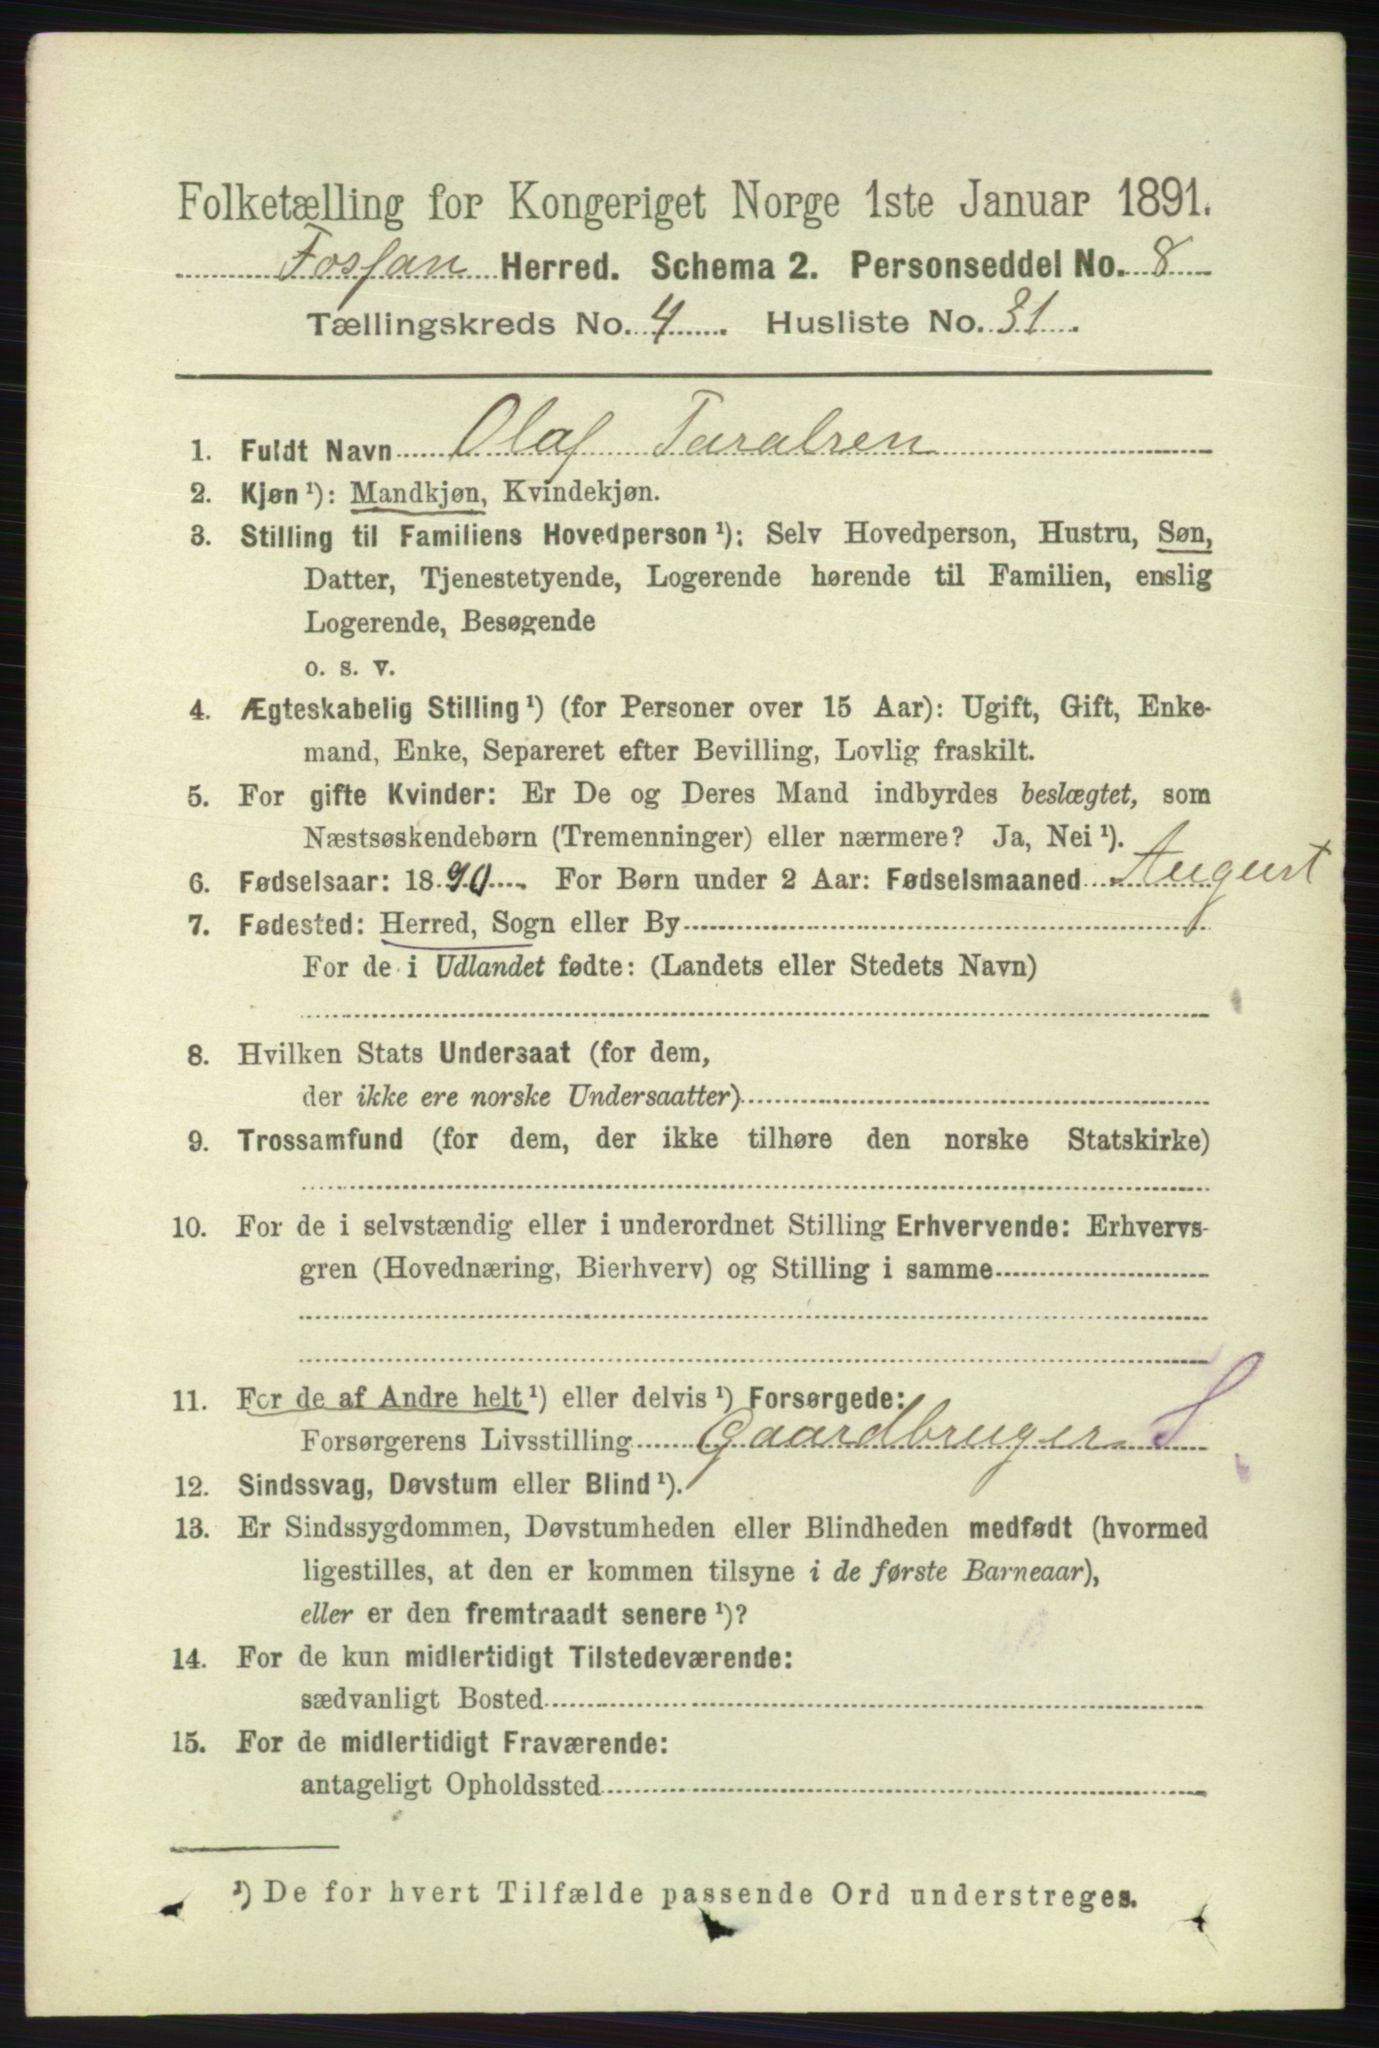 Folketælling for Kongeriget Norge 1ste Januar 1891.
Fossan Herred. Schema 2. Personseddel No. 8
Tællingskreds No. 4 Husliste No. 31.
1. Fuldt Navn Olaf Taralsen
2. Kjøn ¹): Mandkjøn, Kvindekjøn.
3. Stilling til Familiens Hovedperson ¹): Selv Hovedperson, Hustru, Søn,
Datter, Tjenestetyende, Logerende hørende til Familien, enslig
Logerende, Besøgende
o. s. v.
4. Ægteskabelig Stilling ¹) (for Personer over 15 Aar): Ugift, Gift, Enke-
mand, Enke, Separeret efter Bevilling, Lovlig fraskilt.
5. For gifte Kvinder: Er De og Deres Mand indbyrdes beslægtet, som
Næstsøskendebørn (Tremenninger) eller nærmere? Ja, Nei ¹).
6. Fødselsaar: 1890. For Børn under 2 Aar: Fødselsmaaned August
7. Fødested: Herred, Sogn eller By
For de i Udlandet fødte: (Landets eller Stedets Navn)
8. Hvilken Stats Undersaat (for dem,
der ikke ere norske Undersaatter)
9. Trossamfund (for dem, der ikke tilhøre den norske Statskirke)
10. For de i selvstændig eller i underordnet Stilling Erhvervende: Erhvervs-
gren (Hovednæring, Bierhverv) og Stilling i samme
11. For de af Andre helt ¹) eller delvis ¹) Forsørgede:
Forsørgerens Livsstilling Gaardbruger S
12. Sindssvag, Døvstum eller Blind ¹).
13. Er Sindssygdommen, Døvstumheden eller Blindheden medfødt (hvormed
ligestilles, at den er kommen tilsyne i de første Barneaar),
eller er den fremtraadt senere ¹)?
14. For de kun midlertidigt Tilstedeværende:
sædvanligt Bosted
15. For de midlertidigt Fraværende:
antageligt Opholdssted
¹) De for hvert Tilfælde passende Ord understreges.